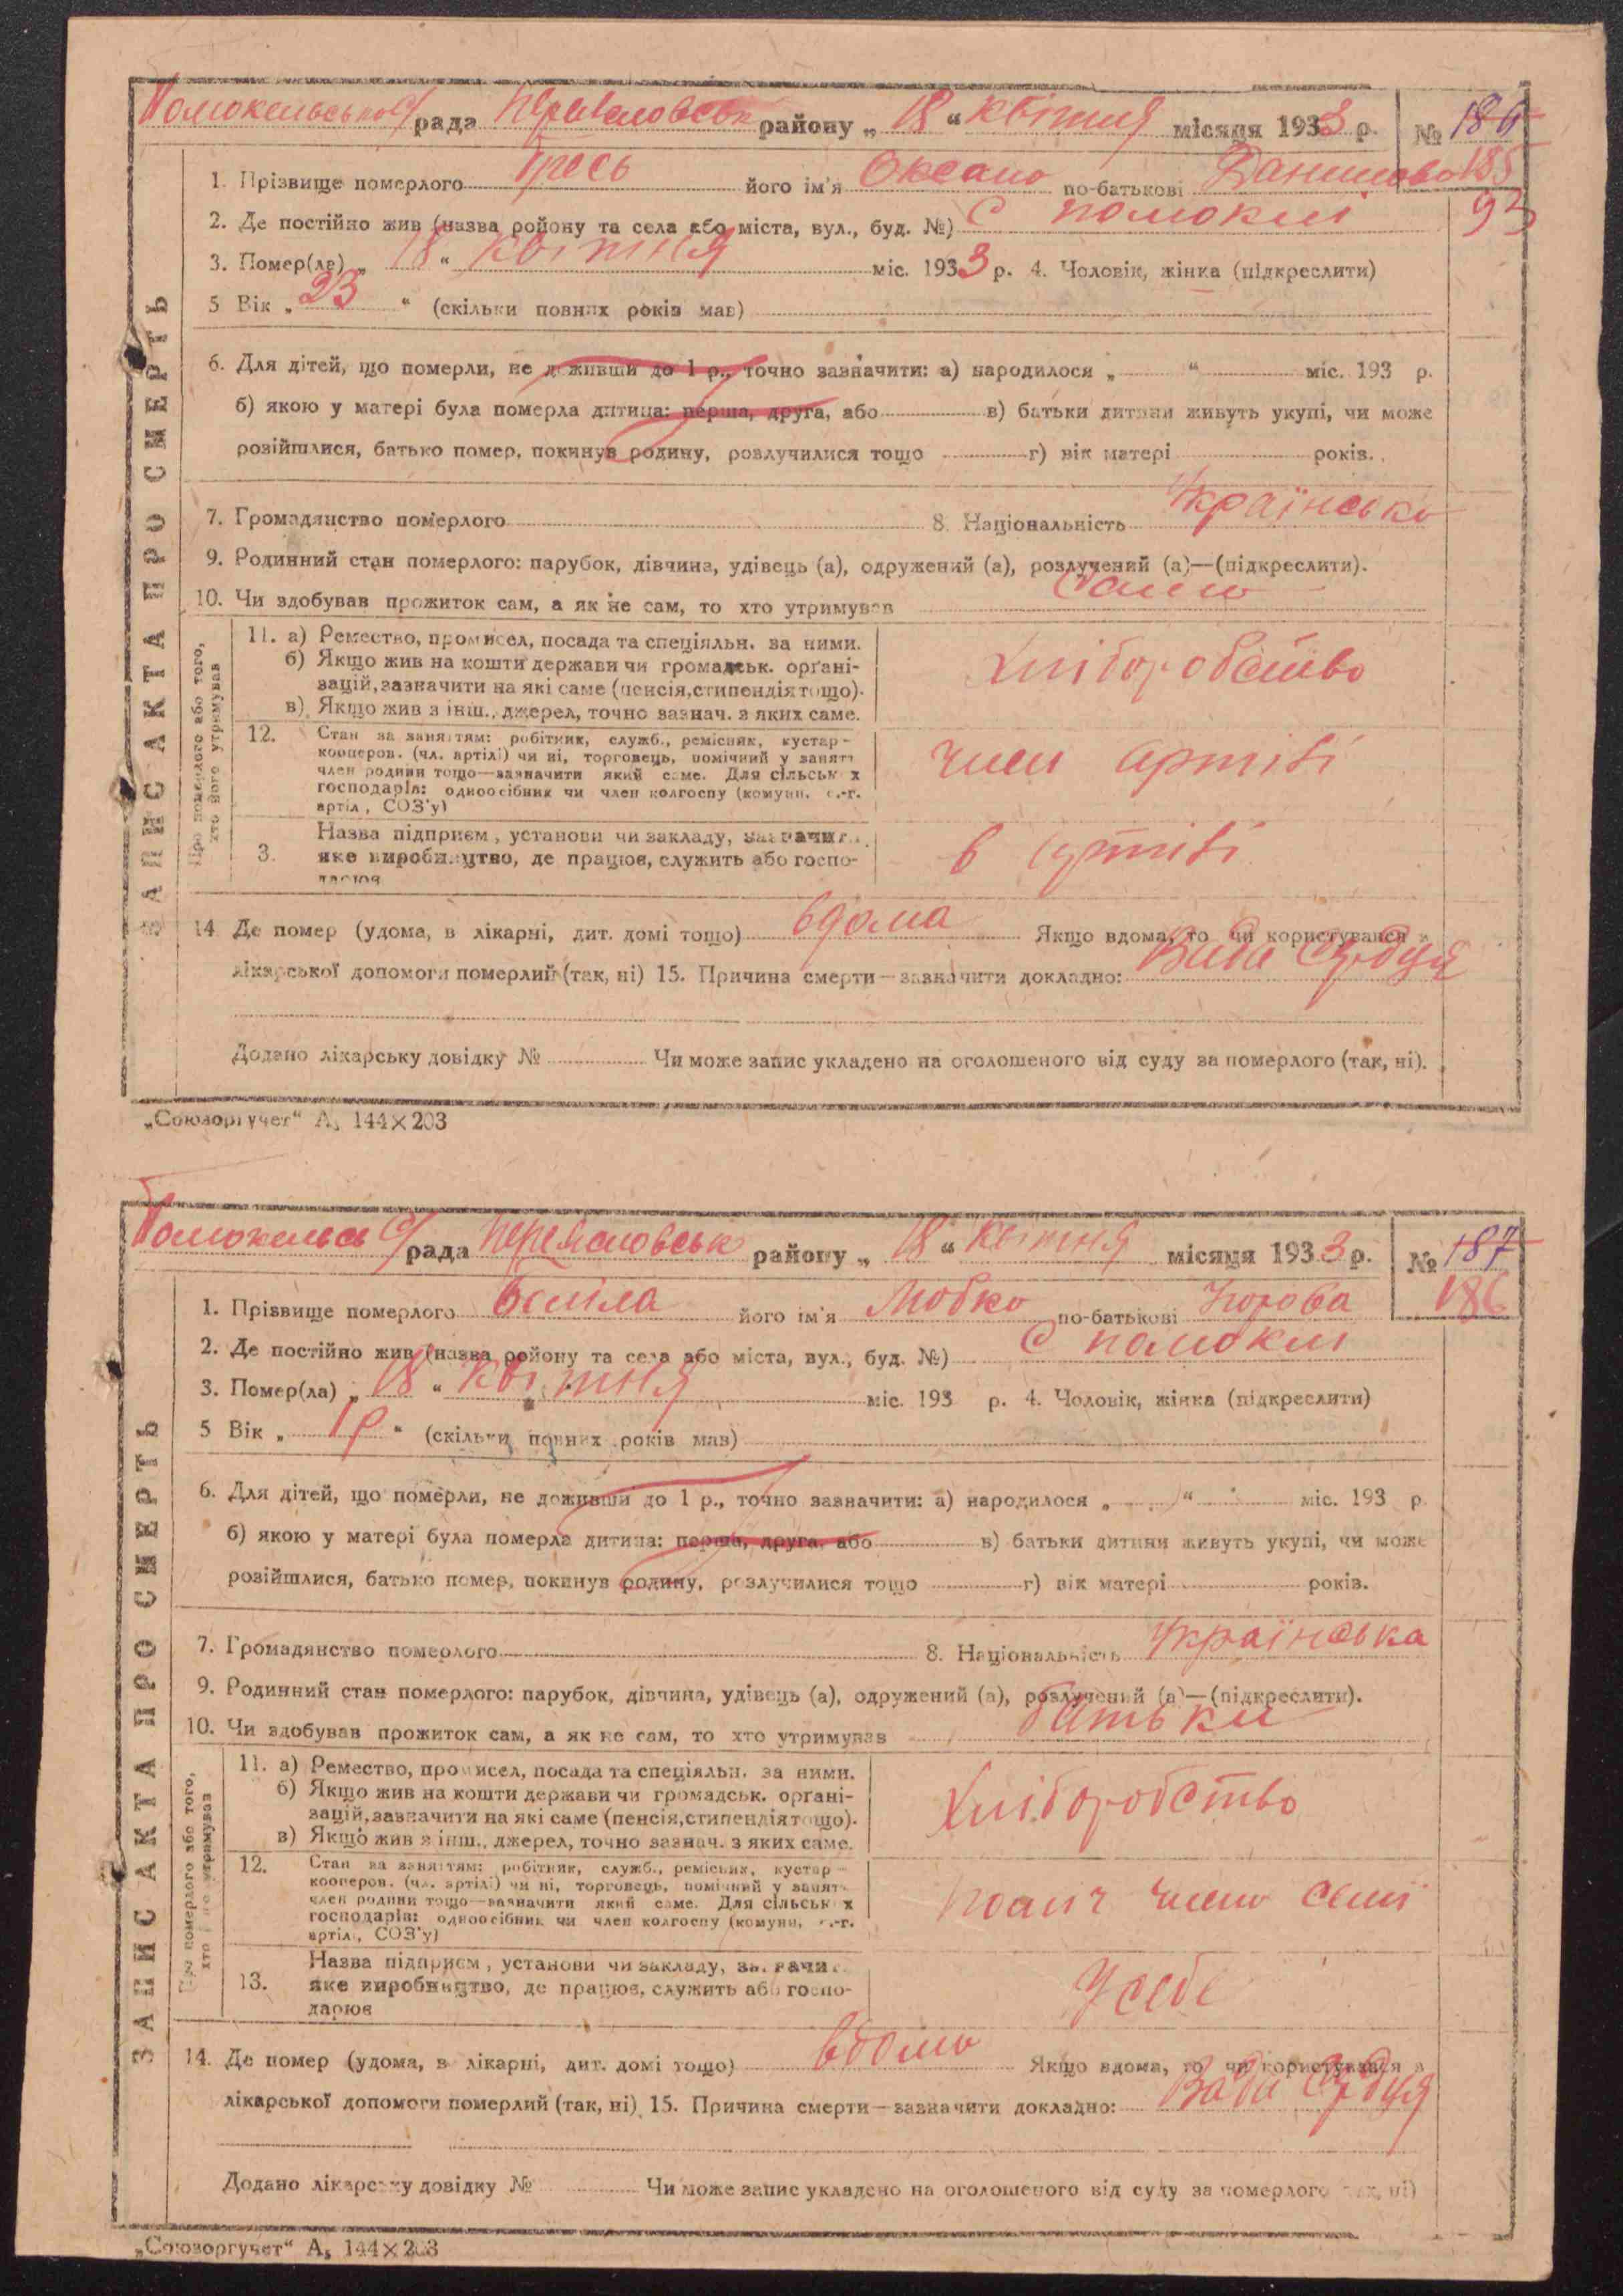 ЗАПИС АКТА ПРО СМЕРТЬ
рада району „ 18 “ квітня місяця 1933 р. № 186
185
1. Прізвище померлого його ім'я Оксана по-батькові
93
2. Де постійно жив (назва району та села або міста, вул., буд. №) с помокли
3. Помер(ла) „ 18 “ квітня міс. 1933 р. 4. Чоловік, жінка (підкреслити)
5 Вік „ 23 “ (скільки повних років мав)
6. Для дітей, що померли, не доживши до 1 р., точно зазначити: а) народилося „ “ міс. 193 р.
б) якою у матері була померла дитина: перша, друга, або в) батьки дитини живуть укупі, чи може
розійшлися, батько помер, покинув родину, розлучилися тощо г) вік матері років.
7. Громадянство померлого 8. Національність Українська
9. Родинний стан померлого: парубок, дівчина, удівець (а), одружений (а), розлучений (а)—(підкреслити).
10. Чи здобував прожиток сам, а як не сам, то хто утримував сама
Про померлого або того,
хто його утримував
11. а) Ремество, промисел, посада та спеціяльн. за ними.
б) Якщо жив на кошти держави чи громадськ. орґані-
зацій, зазначити на які саме (пенсія, стипендія тощо).
в) Якщо жив з інш., джерел, точно зазнач. з яких саме.
Хліборобство
12. Стан за заняттям: робітник, служб., ремісник, кустар-
кооперов. (чл. артілі) чи ні, торговець, помічний у занятт
член родини тощо—зазначити який саме. Для сільськ х
господарів: одноосібник чи член колгоспу (комуни, с.-г.
артіл, СОЗ'у)
член артілі
3. Назва підприєм, установи чи закладу, зазначит
яке виробництво, де працює, служить або госпо-
дарює
в артілі
14 Де помер (удома, в лікарні, дит. домі тощо) вдома Якщо вдома, то чи користувався з
лікарської допомоги померлий (так, ні) 15. Причина смерти—зазначити докладно: Вада сердця
Додано лікарську довідку № Чи може запис укладено на оголошеного від суду за померлого (так, ні).
„Союзоргучет“ А, 144×203
ЗАПИС АКТА ПРО СМЕРТЬ
рада Переясловськ району „ 18 “ квітня місяця 1933 р. № 187
186
1. Прізвище померлого його ім'я Любка по-батькові
2. Де постійно жив (назва району та села або міста, вул., буд. №) с помокли
3. Помер(ла) „ 18 “ квітня міс. 193 р. 4. Чоловік, жінка (підкреслити)
5 Вік „ 1р “ (скільки повних років мав)
6. Для дітей, що померли, не доживши до 1 р., точно зазначити: а) народилося „ “ міс. 193 р.
б) якою у матері була померла дитина: перша, друга, або в) батьки дитини живуть укупі, чи може
розійшлися, батько помер, покинув родину, розлучилися тощо г) вік матері років.
7. Громадянство померлого 8. Національність Українська
9. Родинний стан померлого: парубок, дівчина, удівець (а), одружений (а), розлучений (а)—(підкреслити).
10. Чи здобував прожиток сам, а як не сам, то хто утримував батьки
Про померлого або того,
хто його утримував
11. а) Ремество, промисел, посада та спеціяльн. за ними.
б) Якщо жив на кошти держави чи громадськ. орґані-
зацій, зазначити на які саме (пенсія, стипендія тощо).
в) Якщо жив з інш., джерел, точно зазнач. з яких саме.
Хліборобство
12. Стан за заняттям: робітник, служб., ремісник, кустар-
кооперов. (чл. артілі) чи ні, торговець, помічний у занятт
член родини тощо—зазначити який саме. Для сільськ х
господарів: одноосібник чи член колгоспу (комуни, с.-г.
артіл, СОЗ'у)
член семї
13. Назва підприєм, установи чи закладу, зазначи
яке виробництво, де працює, служить або госпо-
дарює
У себе
14. Де помер (удома, в лікарні, дит. домі тощо) вдома Якщо вдома, то чи користувався з
лікарської допомоги померлий (так, ні) 15. Причина смерти—зазначити докладно: Вада сердця
Додано лікарську довідку № Чи може запис укладено на оголошеного від суду за померлого (так, ні)
„Союзоргучет“ А, 144×203